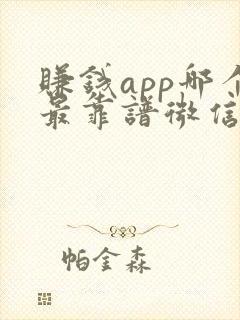 賺錢app哪个
最靠譜微信
帕金森